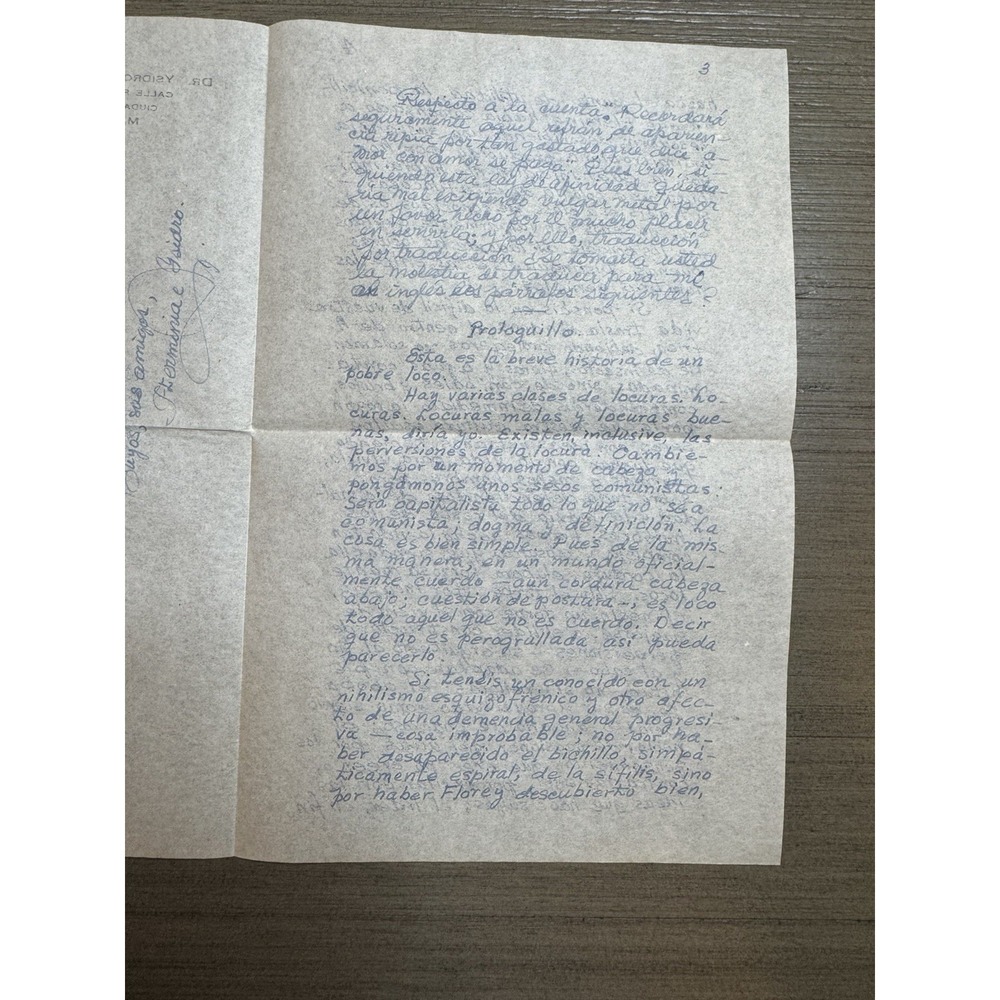 DR. YSIDRO
CALLE
CIUDA
M
suyos, sus amigos,
Herminia e Ysidro.
3
Respecto a la cuenta. Recordará
seguramente aquel refrán de aparien-
cia ripia por tan gastado que dice "a-
mor con amor se paga". Pues bien, si
guiendo esta ley de afinidad queda
ría mal exigiendo vulgar metal por
un favor hecho por el mucho placer
en servirla; y por ello, traducción
por traducción ¿se tomaría usted
la molestia de traducir para mí
en inglés los párrafos siguientes?
Prologuillo.
Esta es la breve historia de un
pobre loco.
Hay varias clases de locuras. Lo-
curas. Locuras malas y locuras bue-
nas, diría yo. Existen, inclusive, las
perversiones de la locura. Cambie-
mos por un momento de cabeza y
pongámonos unos sesos comunistas:
Será capitalista todo lo que no sea
comunista; dogma y definición. La
cosa es bien simple. Pues de la mis-
ma manera, en un mundo oficial-
mente cuerdo —aun cordura cabeza
abajo; cuestión de postura—, es loco
todo aquel que no es cuerdo. Decir
que no es perogrullada así pueda
parecerlo.
Si tenéis un conocido con un
nihilismo esquizofrénico y otro afec-
to de una demencia general progresi-
va —cosa improbable; no por ha-
ber desaparecido el bichillo, simpá-
ticamente espiral, de la sífilis, sino
por haber Florey descubierto bien,